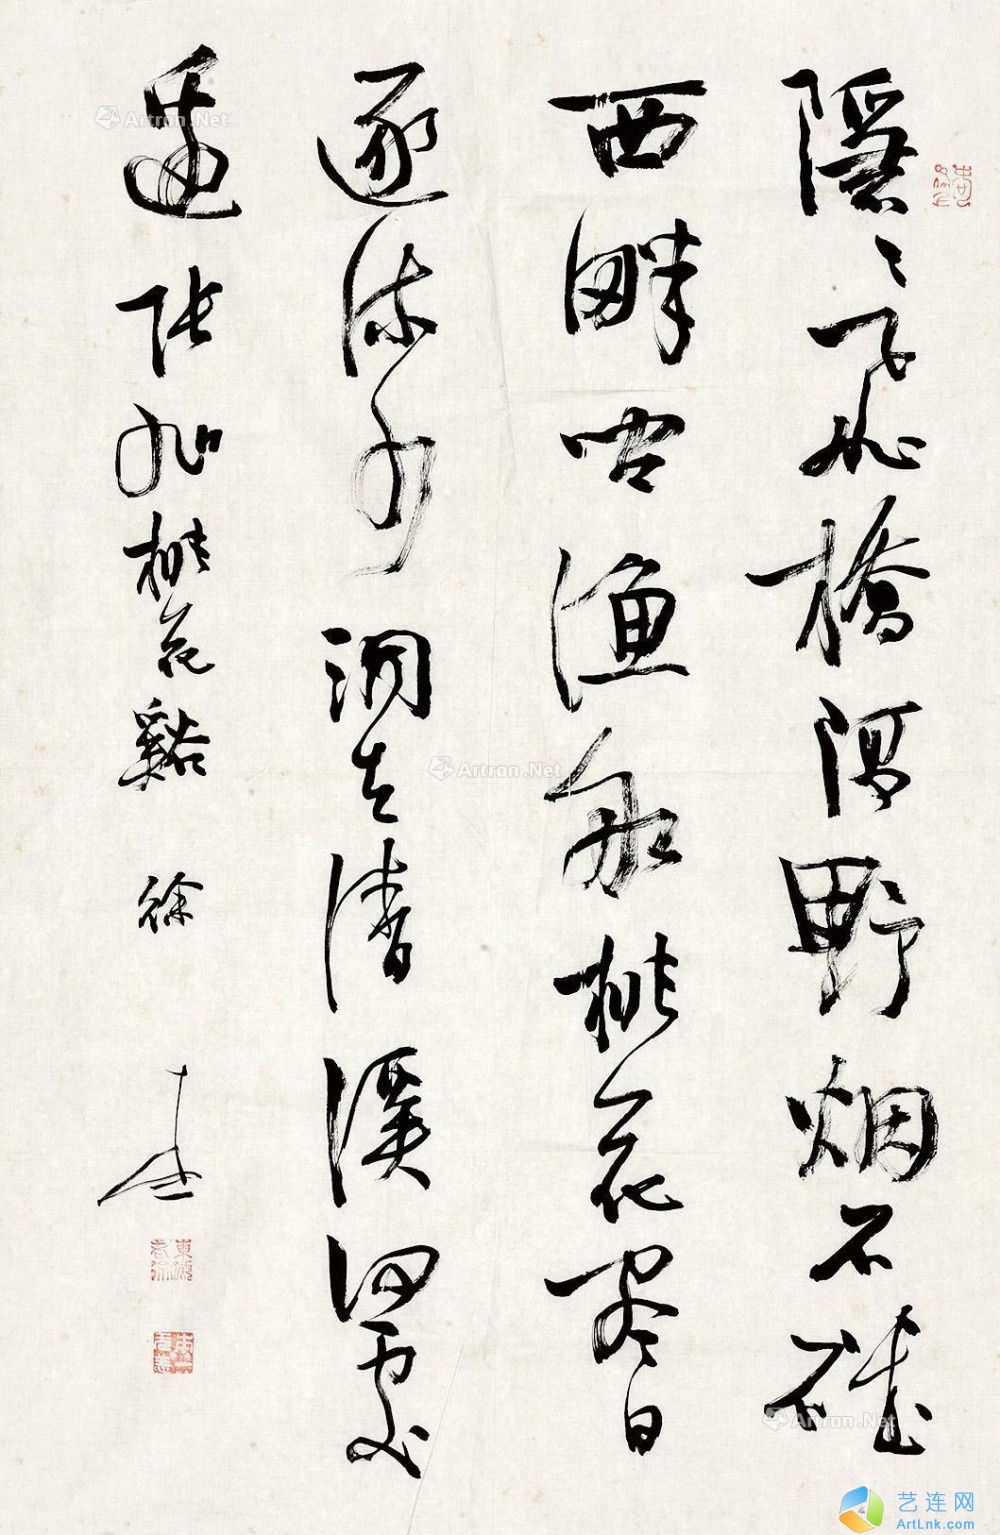 隱〻飛橋隔野烟石磯
西畔問渔船桃花尽日
逐流水洞在清溪何處
邊張旭桃花谿 徐
Artron.Net
Artron.Net
Artron.Net
艺连网
ArtLnk.com